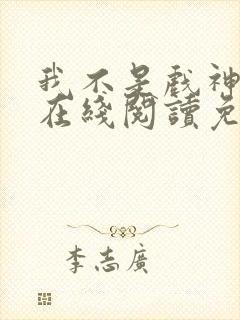 我不是戲神
在綫閱讀免
李志廣